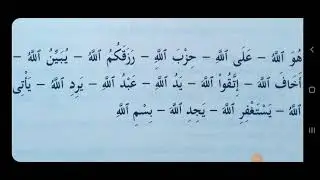 هُوَ ٱللَّهُ – عَلَى ٱللَّهِ – حِزْبَ ٱللَّهِ – رَزَقَكُمُ ٱللَّهُ – يُبَيِّنُ ٱللَّهُ –
أَخَافُ ٱللَّهَ – اِتَّقُوا۟ ٱللَّهَ – يَدُ ٱللَّهِ – عَبْدُ ٱللَّهِ – يَرِدِ ٱللَّهُ – يَأْتِى
ٱللَّهُ – يَسْتَغْفِرِ ٱللَّهَ – يَجِدِ ٱللَّهَ – بِسْمِ ٱللَّهِ